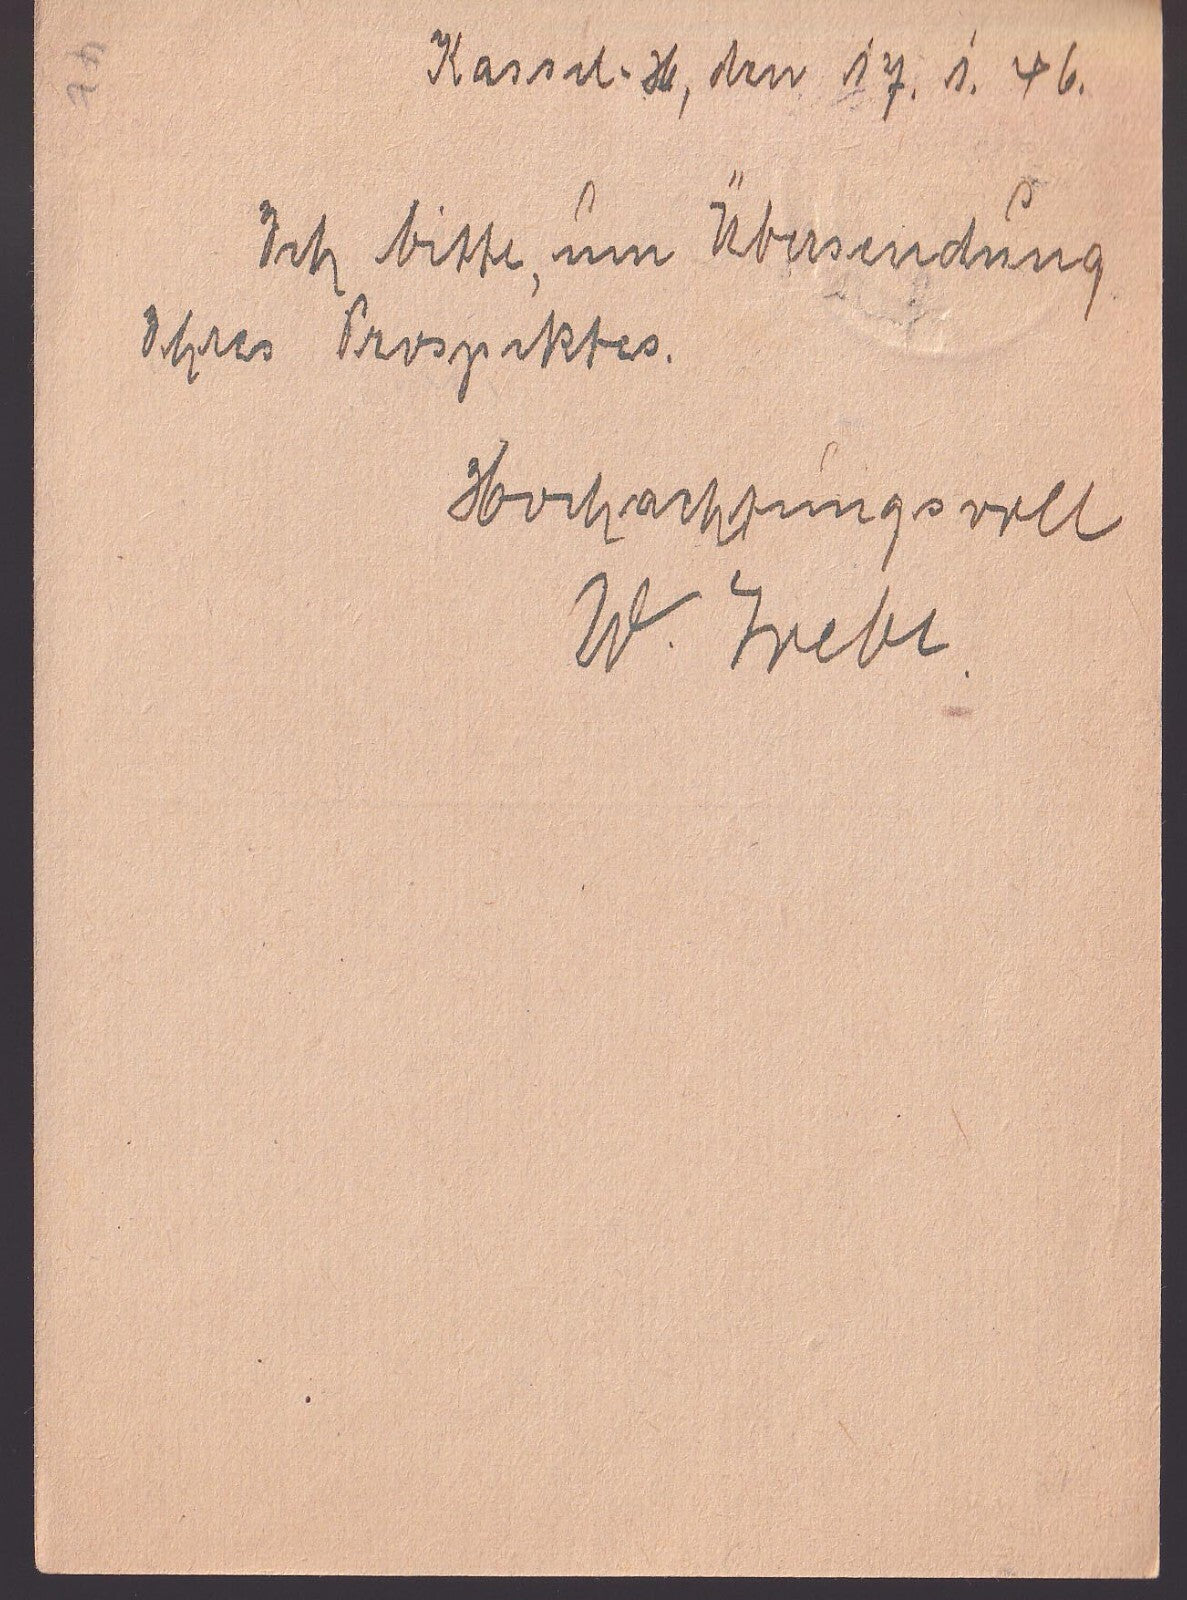 Kassel-H, den 17. 1. 46.
Ich bitte, um Übersendung
Ihres Prospektes.
Hochachtungsvoll
W.